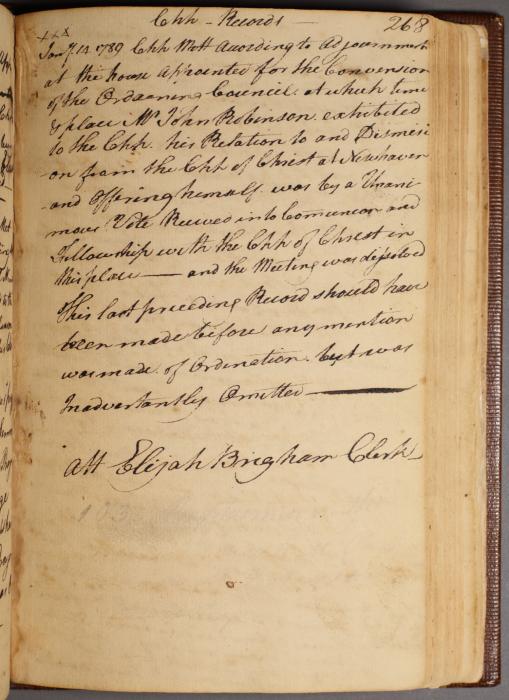 Chh - Records - 268
xxx
Jany. 14. 1789 Chh Mett Acording to Adjournment
at the house Appointed for the Convension
of the Ordaining Council. at which time
& place Mr John Robinson exhibited
to the Chh. his Relation to and Dismissi
on from the Chh of Christ at Newhaven
and Offering himself. was by a Unani
mous Vote Received into Comunion and
Fellowship with the Chh of Christ in
this place — and the Meeting was dissolved
This last preceeding Record should have
been made before any mention
was made. of Ordination. but was
Inadvertantly Omitted —
Att Elijah Brigham Clerk